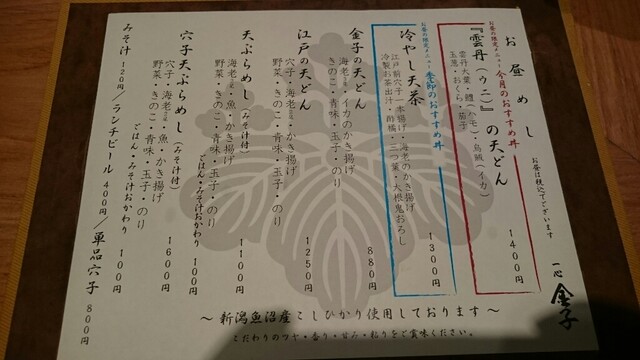 お昼めし
お昼は税込でございます
一心 金子
お昼の限定メニュー 今月のおすすめ丼
『雲丹（ウニ）』の天どん
雲丹大葉・鱧（ハモ）・烏賊（イカ）
玉葱・おくら・茄子
1400円
お昼の限定メニュー 季節のおすすめ丼
冷やし天茶
江戸前穴子一本揚げ・海老のかき揚げ
冷製お茶出汁・酢橘・三つ葉・大根鬼おろし
1300円
金子の天どん
海老・イカのかき揚げ
きのこ・青味・玉子・のり
880円
江戸の天どん
穴子・海老・かき揚げ
野菜・きのこ・青味・玉子・のり
1250円
天ぷらめし（みそ汁付）
海老・魚・かき揚げ
野菜・きのこ・青味・玉子・のり
1100円
ごはん・みそ汁おかわり 100円
穴子天ぷらめし（みそ汁付）
穴子・海老・魚・かき揚げ
野菜・きのこ・青味・玉子・のり
1600円
ごはん・みそ汁おかわり 100円
みそ汁 120円／ランチビール 400円／単品穴子 800円
～新潟魚沼産こしひかり使用しております～
こだわりのツヤ・香り・甘み・粘りをご賞味ください。